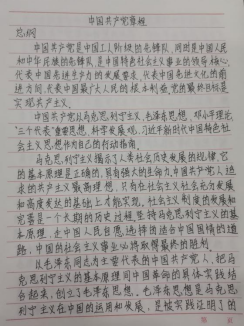 中国共产党章程
总纲
中国共产党是中国工人阶级的先锋队，同时是中国人民
和中华民族的先锋队，是中国特色社会主义事业的领导核心，
代表中国先进生产力的发展要求，代表中国先进文化的前
进方向，代表中国最广大人民的根本利益。党的最高理想和最终目标是
实现共产主义。
中国共产党以马克思列宁主义、毛泽东思想、邓小平理论、
“三个代表”重要思想、科学发展观、习近平新时代中国特色社
会主义思想作为自己的行动指南。
马克思列宁主义揭示了人类社会历史发展的规律，它
的基本原理是正确的，具有强大的生命力。中国共产党人追
求的共产主义最高理想，只有在社会主义社会充分发展
和高度发达的基础上才能实现。社会主义制度的发展和
完善是一个长期的历史过程。坚持马克思列宁主义的基
本原理，走中国人民自愿选择的适合中国国情的道
路，中国的社会主义事业必将取得最终的胜利。
以毛泽东同志为主要代表的中国共产党人，把马
克思列宁主义的基本原理同中国革命的具体实践结
合起来，创立了毛泽东思想。毛泽东思想是马克思列
宁主义在中国的运用和发展，是被实践证明了的